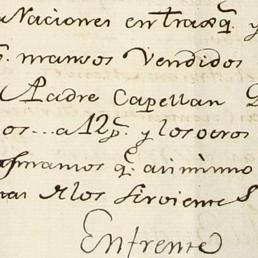 Naciones entraxq. y
p. mansos Vendidos
Padre Capellan
os... a 12 p. y los otros
q. asimismo
los sirvientes
Enfrente